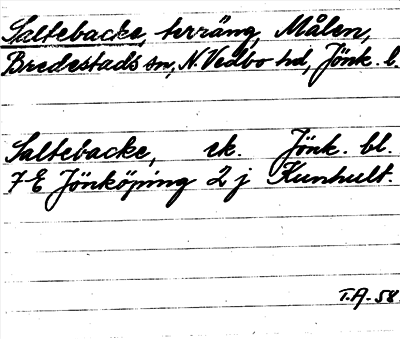 Saltebacke, terräng, Målen,
Bredestads sn, N. Vedbo hd, Jönk. l.
Saltebacke, ek. Jönk. bl.
7 E Jönköping 2 j Kunhult.
T.A. 58.